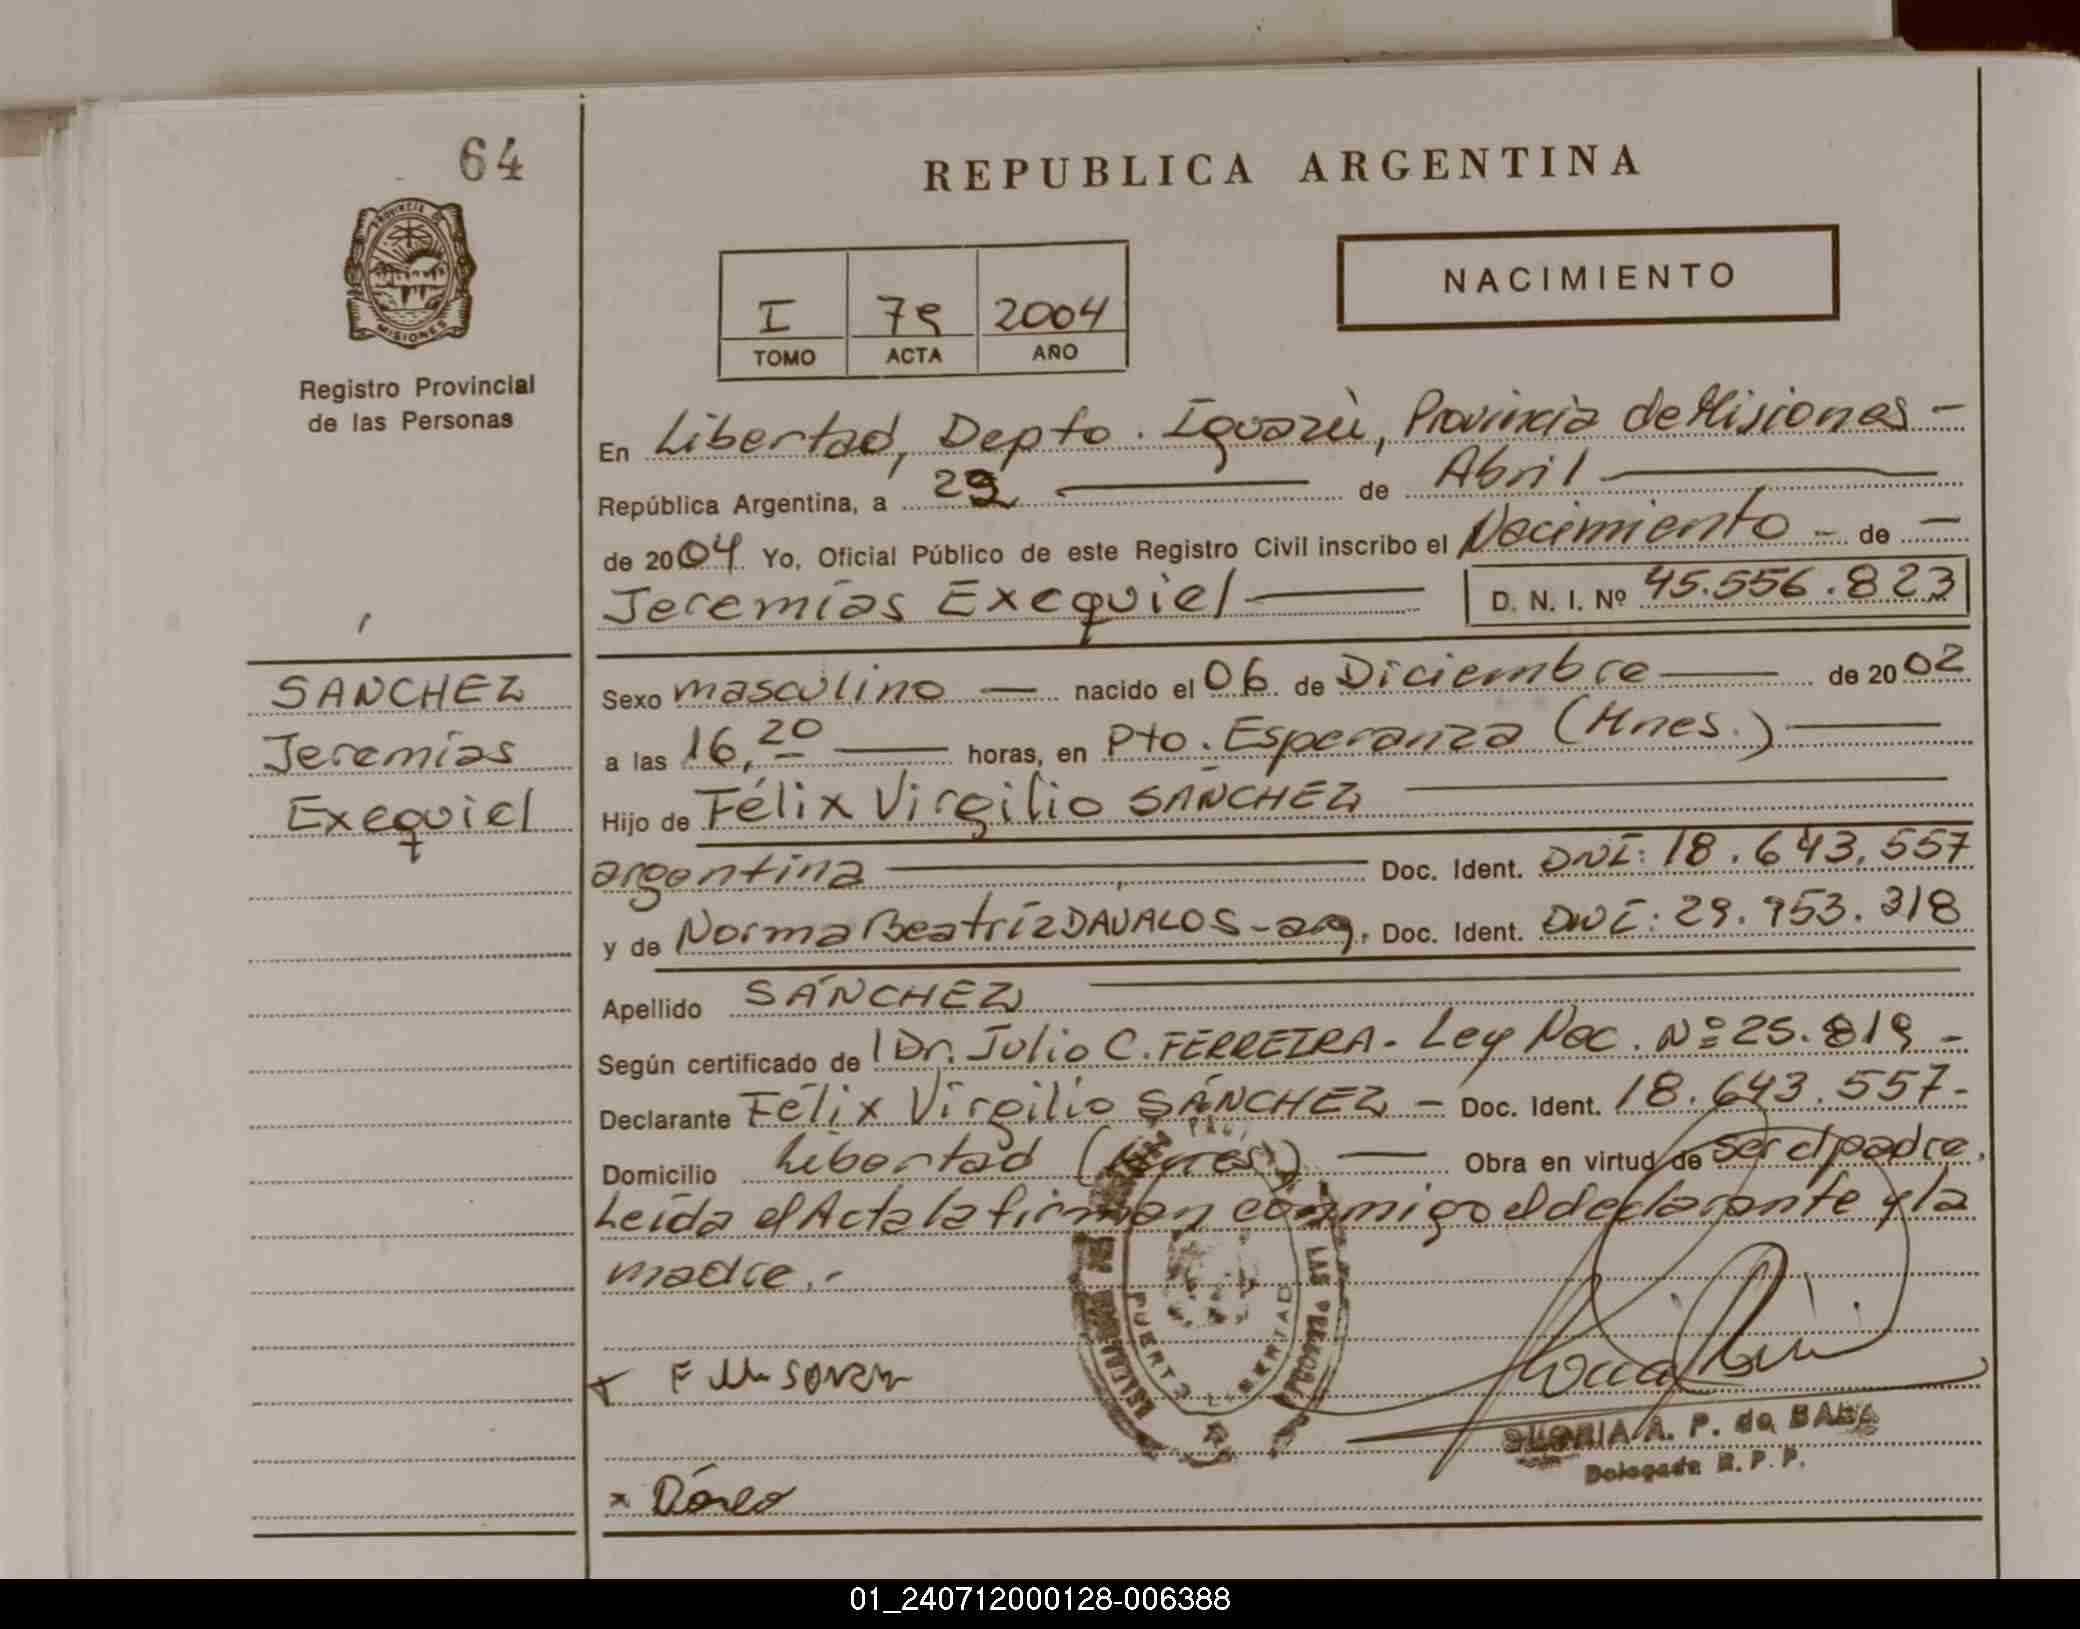 64
PROVINCIA DE
MISIONES
Registro Provincial
de las Personas
SANCHEZ
Jeremías
Exequiel
REPUBLICA ARGENTINA
NACIMIENTO
I 79 2004
TOMO ACTA AÑO
En Libertad, Depto. Iguazù, Provincia de Misiones -
República Argentina, a 29 — de Abril —
de 2004 Yo, Oficial Público de este Registro Civil inscribo el Nacimiento - de -
Jeremías Exequiel — D. N. I. Nº 45.556.823
Sexo masculino — nacido el 06 de Diciembre — de 2002
a las 16,20 — horas, en Pto. Esperanza (Mnes.) —
Hijo de Félix Virgilio SÁNCHEZ —
argentina — Doc. Ident. DNI: 18.643.557
y de Norma Beatríz DAVALOS - arg. Doc. Ident. DNI: 29.953.318
Apellido SÁNCHEZ —
Según certificado de l Dr. Julio C. FERREIRA - Ley Nac. Nº 25.819 -
Declarante Félix Virgilio SÁNCHEZ - Doc. Ident. 18.643.557-
Domicilio Libertad (Mnes) — Obra en virtud de ser el padre.
Leída el Acta la firman conmigo el declarante y la
madre.-
PUERTO LIBERTAD
LAS PERSONAS
GLORIA A. P. de BABA
Delegada R. P. P.
01_240712000128-006388